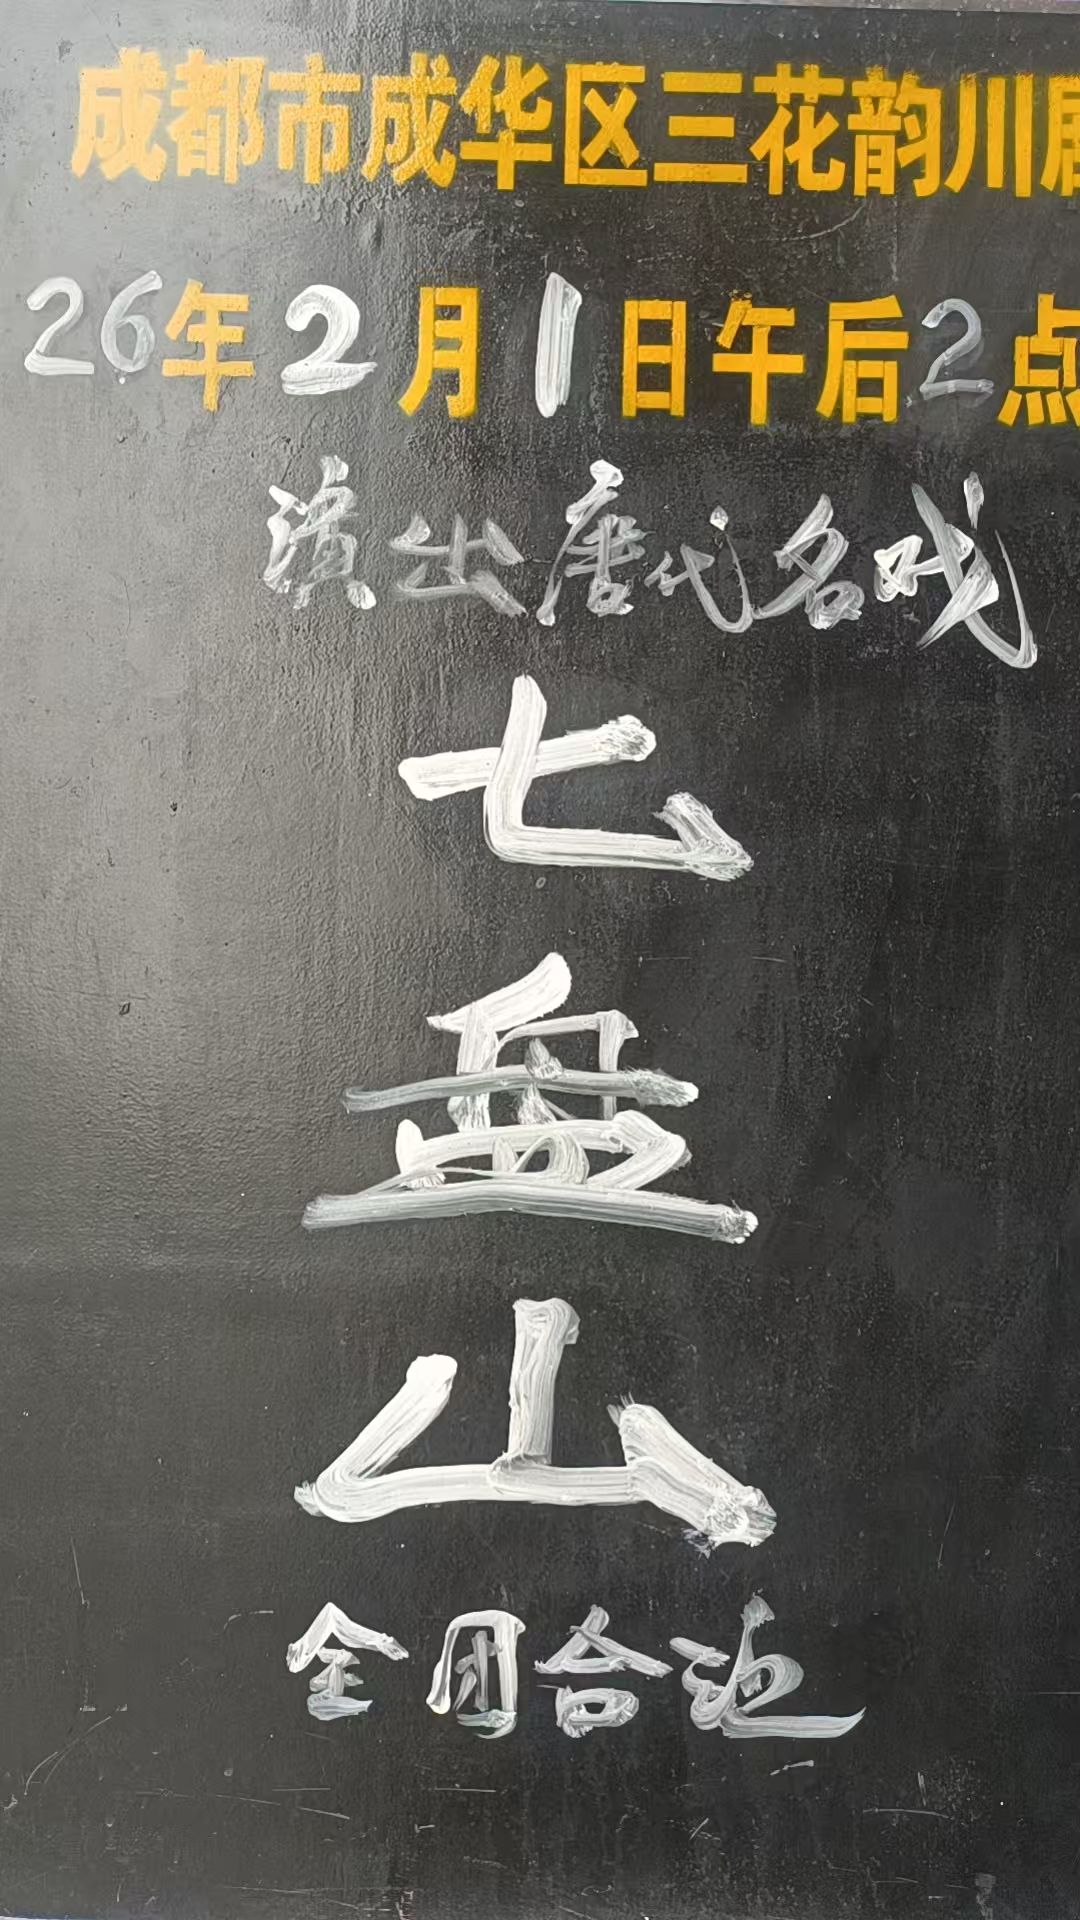 成都市成华区三花韵川剧
26年2月1日午后2点
演出唐代名戏
七
盘
山
全团合演